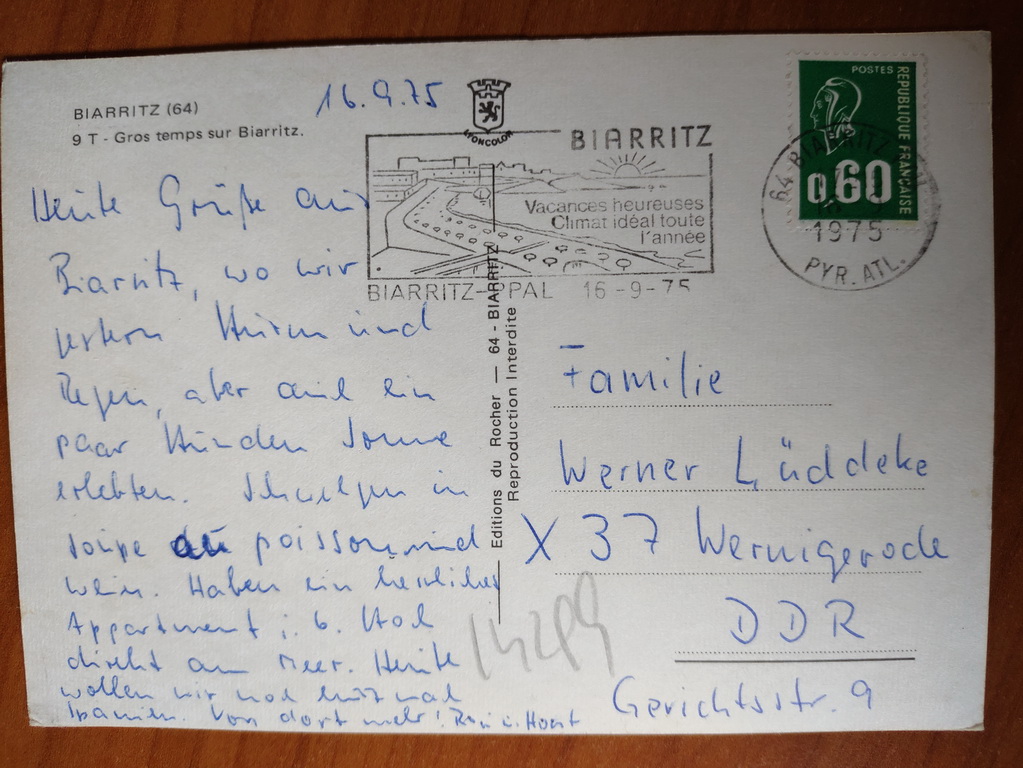 BIARRITZ (64)
9 T - Gros temps sur Biarritz.
16.9.75
LYONCOLOR
BIARRITZ
Vacances heureuses
Climat idéal toute
l'année
BIARRITZ-PPAL 16-9-75
POSTES
REPUBLIQUE FRANÇAISE
0,60
64 BIARRITZ
1975
PYR. ATL.
Heute Grüße aus
Biarritz, wo wir
gestern Sturm und
Regen, aber auch ein
paar Stunden Sonne
erlebten. Schwelgen in
soupe au poisson und
Wein. Haben ein herrliches
Appartment i. 6. Stock
direkt am Meer. Heute
wollen wir noch kurz mal
Spanien. Von dort mehr! u. Horst
Editions du Rocher — 64 - BIARRITZ
Reproduction Interdite
Familie
Werner Lüddeke
X 37 Wernigerode
DDR
Gerichtsstr. 9
14299